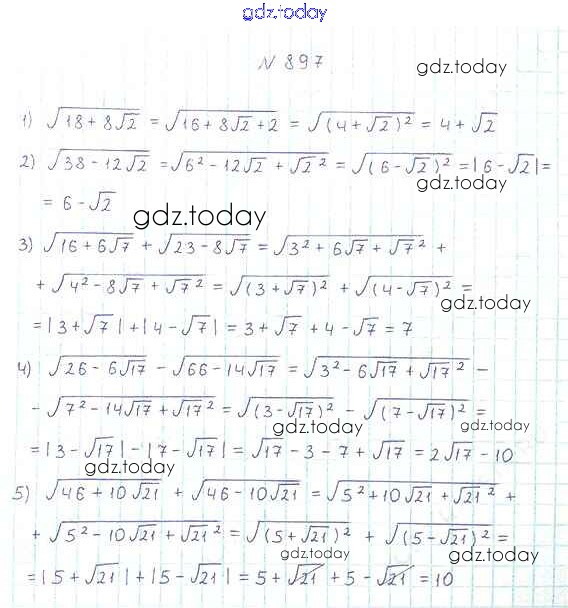 gdz.today
N 897
gdz.today
1) √(18 + 8√2) = √(16 + 8√2 + 2) = √((4 + √2)²) = 4 + √2
2) √(38 - 12√2) = √(6² - 12√2 + √2²) = √((6 - √2)²) = |6 - √2| =
gdz.today
= 6 - √2
gdz.today
3) √(16 + 6√7) + √(23 - 8√7) = √(3² + 6√7 + √7²) +
+ √(4² - 8√7 + √7²) = √((3 + √7)²) + √((4 - √7)²) =
gdz.today
= |3 + √7| + |4 - √7| = 3 + √7 + 4 - √7 = 7
4) √(26 - 6√17) - √(66 - 14√17) = √(3² - 6√17 + √17²) -
- √(7² - 14√17 + √17²) = √((3 - √17)²) - √((7 - √17)²) =
gdz.today
= |3 - √17| - |7 - √17| = √17 - 3 - 7 + √17 = 2√17 - 10
gdz.today
5) √(46 + 10√21) + √(46 - 10√21) = √(5² + 10√21 + √21²) +
+ √(5² - 10√21 + √21²) = √((5 + √21)²) + √((5 - √21)²) =
gdz.today
gdz.today
= |5 + √21| + |5 - √21| = 5 + √21 + 5 - √21 = 10